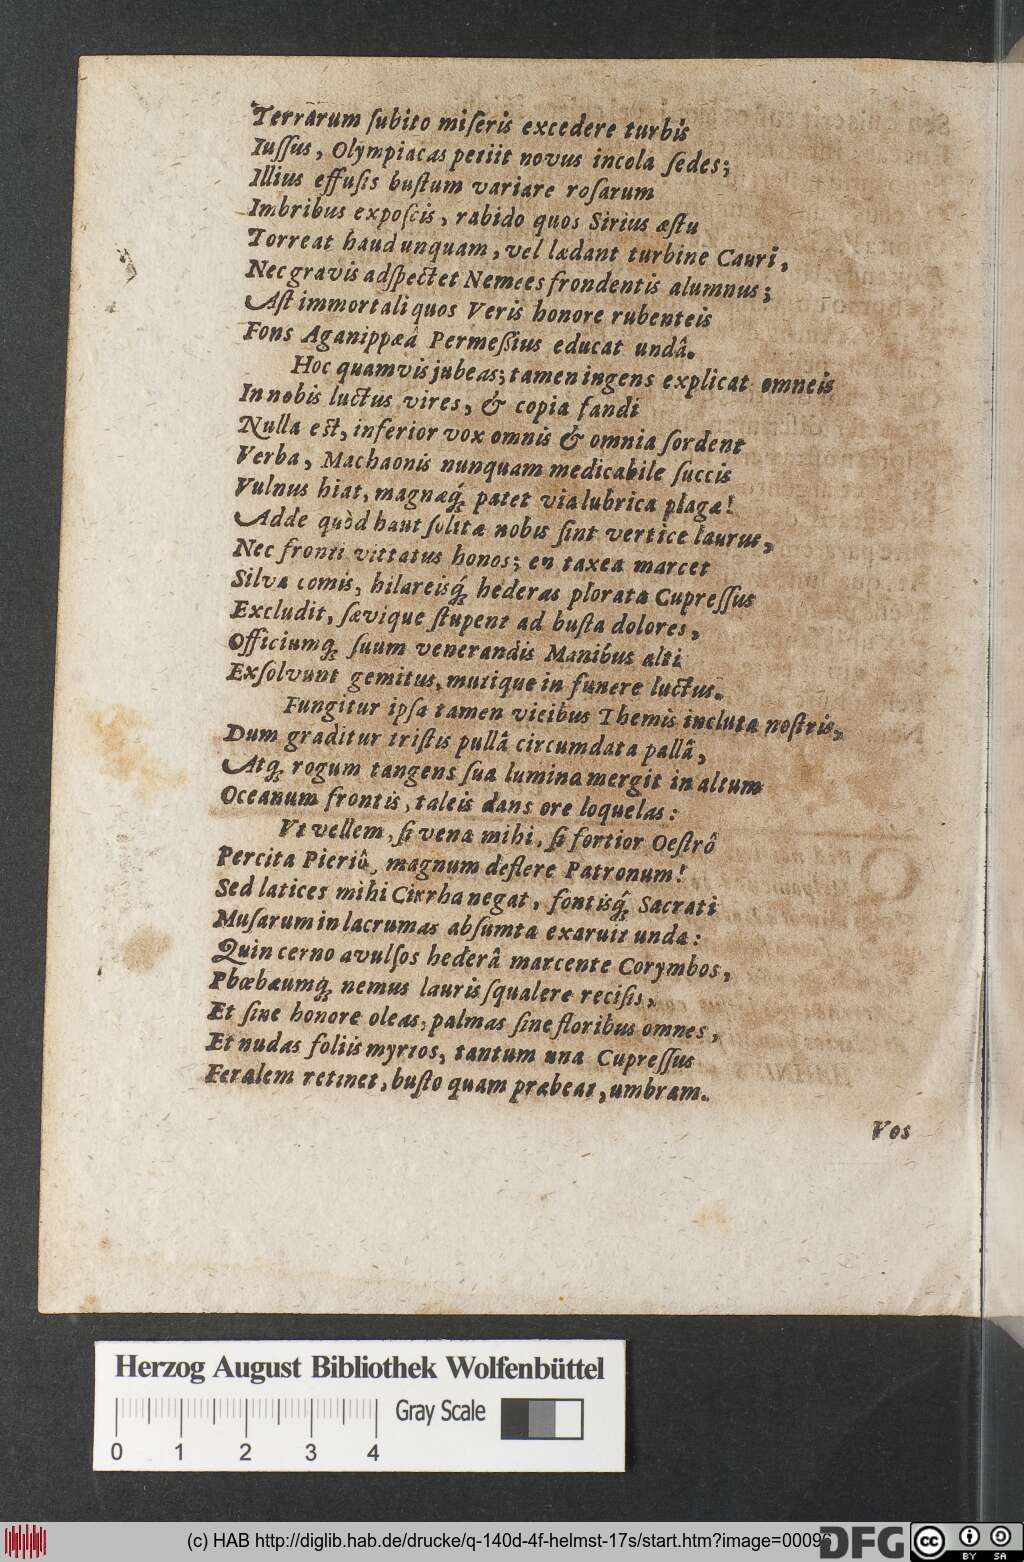 Terrarum ſubito miſeris excedere turbis
Iuſſus, Olympiacas petiit novus incola ſedes;
Illius effuſis buſtum variare roſarum
Imbribus expoſcis, rabido quos Sirius æſtu
Torreat haud unquam, vel lædant turbine Cauri,
Nec gravis adſpectet Nemees frondentis alumnus;
Aſt immortali quos Veris honore rubenteis
Fons Aganippæâ Permeſſius educat undâ.
Hoc quamvis jubeas; tamen ingens explicat omneis
In nobis luctus vires, & copia fandi
Nulla est, inferior vox omnis & omnia ſordent
Verba, Machaonis nunquam medicabile ſuccis
Vulnus hiat, magnæq́; patet via lubrica plagæ!
Adde quòd haut ſolitæ nobis ſint vertice laurus,
Nec fronti vittatus honos; en taxea marcet
Silva comis, hilareisq́; hederas plorata Cupreſſus
Excludit, ſævique ſtupent ad buſta dolores,
Officiumq; ſuum venerandis Manibus alti
Exſolvunt gemitus, mutique in funere luctus.
Fungitur ipſa tamen vicibus Themis incluta noſtris,
Dum graditur triſtis pullâ circumdata pallâ,
Atq; rogum tangens ſua lumina mergit in altum
Oceanum frontis, taleis dans ore loquelas:
Vt vellem, ſi vena mihi, ſi fortior Oeſtrô
Percita Pieriô, magnum deflere Patronum!
Sed latices mihi Cirrha negat, fontisq́; Sacrati
Muſarum in lacrumas abſumta exaruit unda:
Quin cerno avulſos hederâ marcente Corymbos,
Phœbæumq; nemus lauris ſqualere reciſis,
Et ſine honore oleas, palmas ſine floribus omnes,
Et nudas foliis myrtos, tantum una Cupreſſus
Feralem retinet, buſto quam præbeat, umbram.
Vos
Herzog August Bibliothek Wolfenbüttel
Gray Scale
0 1 2 3 4
(c) HAB http://diglib.hab.de/drucke/q-140d-4f-helmst-17s/start.htm?image=00096
DFG
cc BY SA